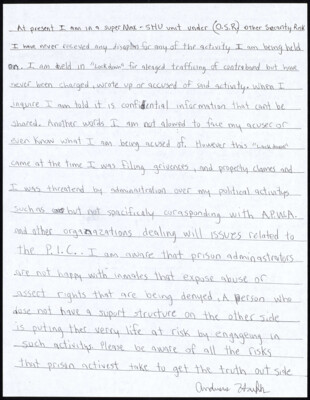 At present I am in a super Max - SHU unit under (O.S.R) other Security Risk
I have never recieved any disiplin for any of the activity I am being held
on. I am held in "Lockdown" for aleged trafficing of contraband but have
never been charged, wrote up or accused of said activity. When I
inquire I am told it is confidential information that cant be
shared. Another words I am not alowed to face my acuser or
even know what I am being acused of. However this "Lockdown"
came at the time I was filing grievences, and property claims and
I was threatend by administration over my political activitys
such as but not spicifically corisponding with A.P.W.A.
and other organazations dealing will issues related to
the P.I.C.. I am aware that prison administrators
are not happy with inmates that expose abuse or
assert rights that are being denyed. A person who
dose not have a suport structure on the other side
is puting the verry life at risk by engageing in
such activity. Please be aware of all the risks
that prison activest take to get the truth out side